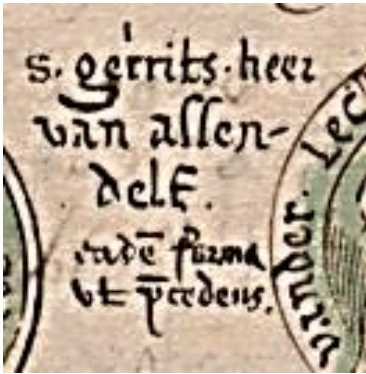 s. gerrits. heer
van assen-
delf.
eadē forma
vt p̄cedens.
vander. Lec